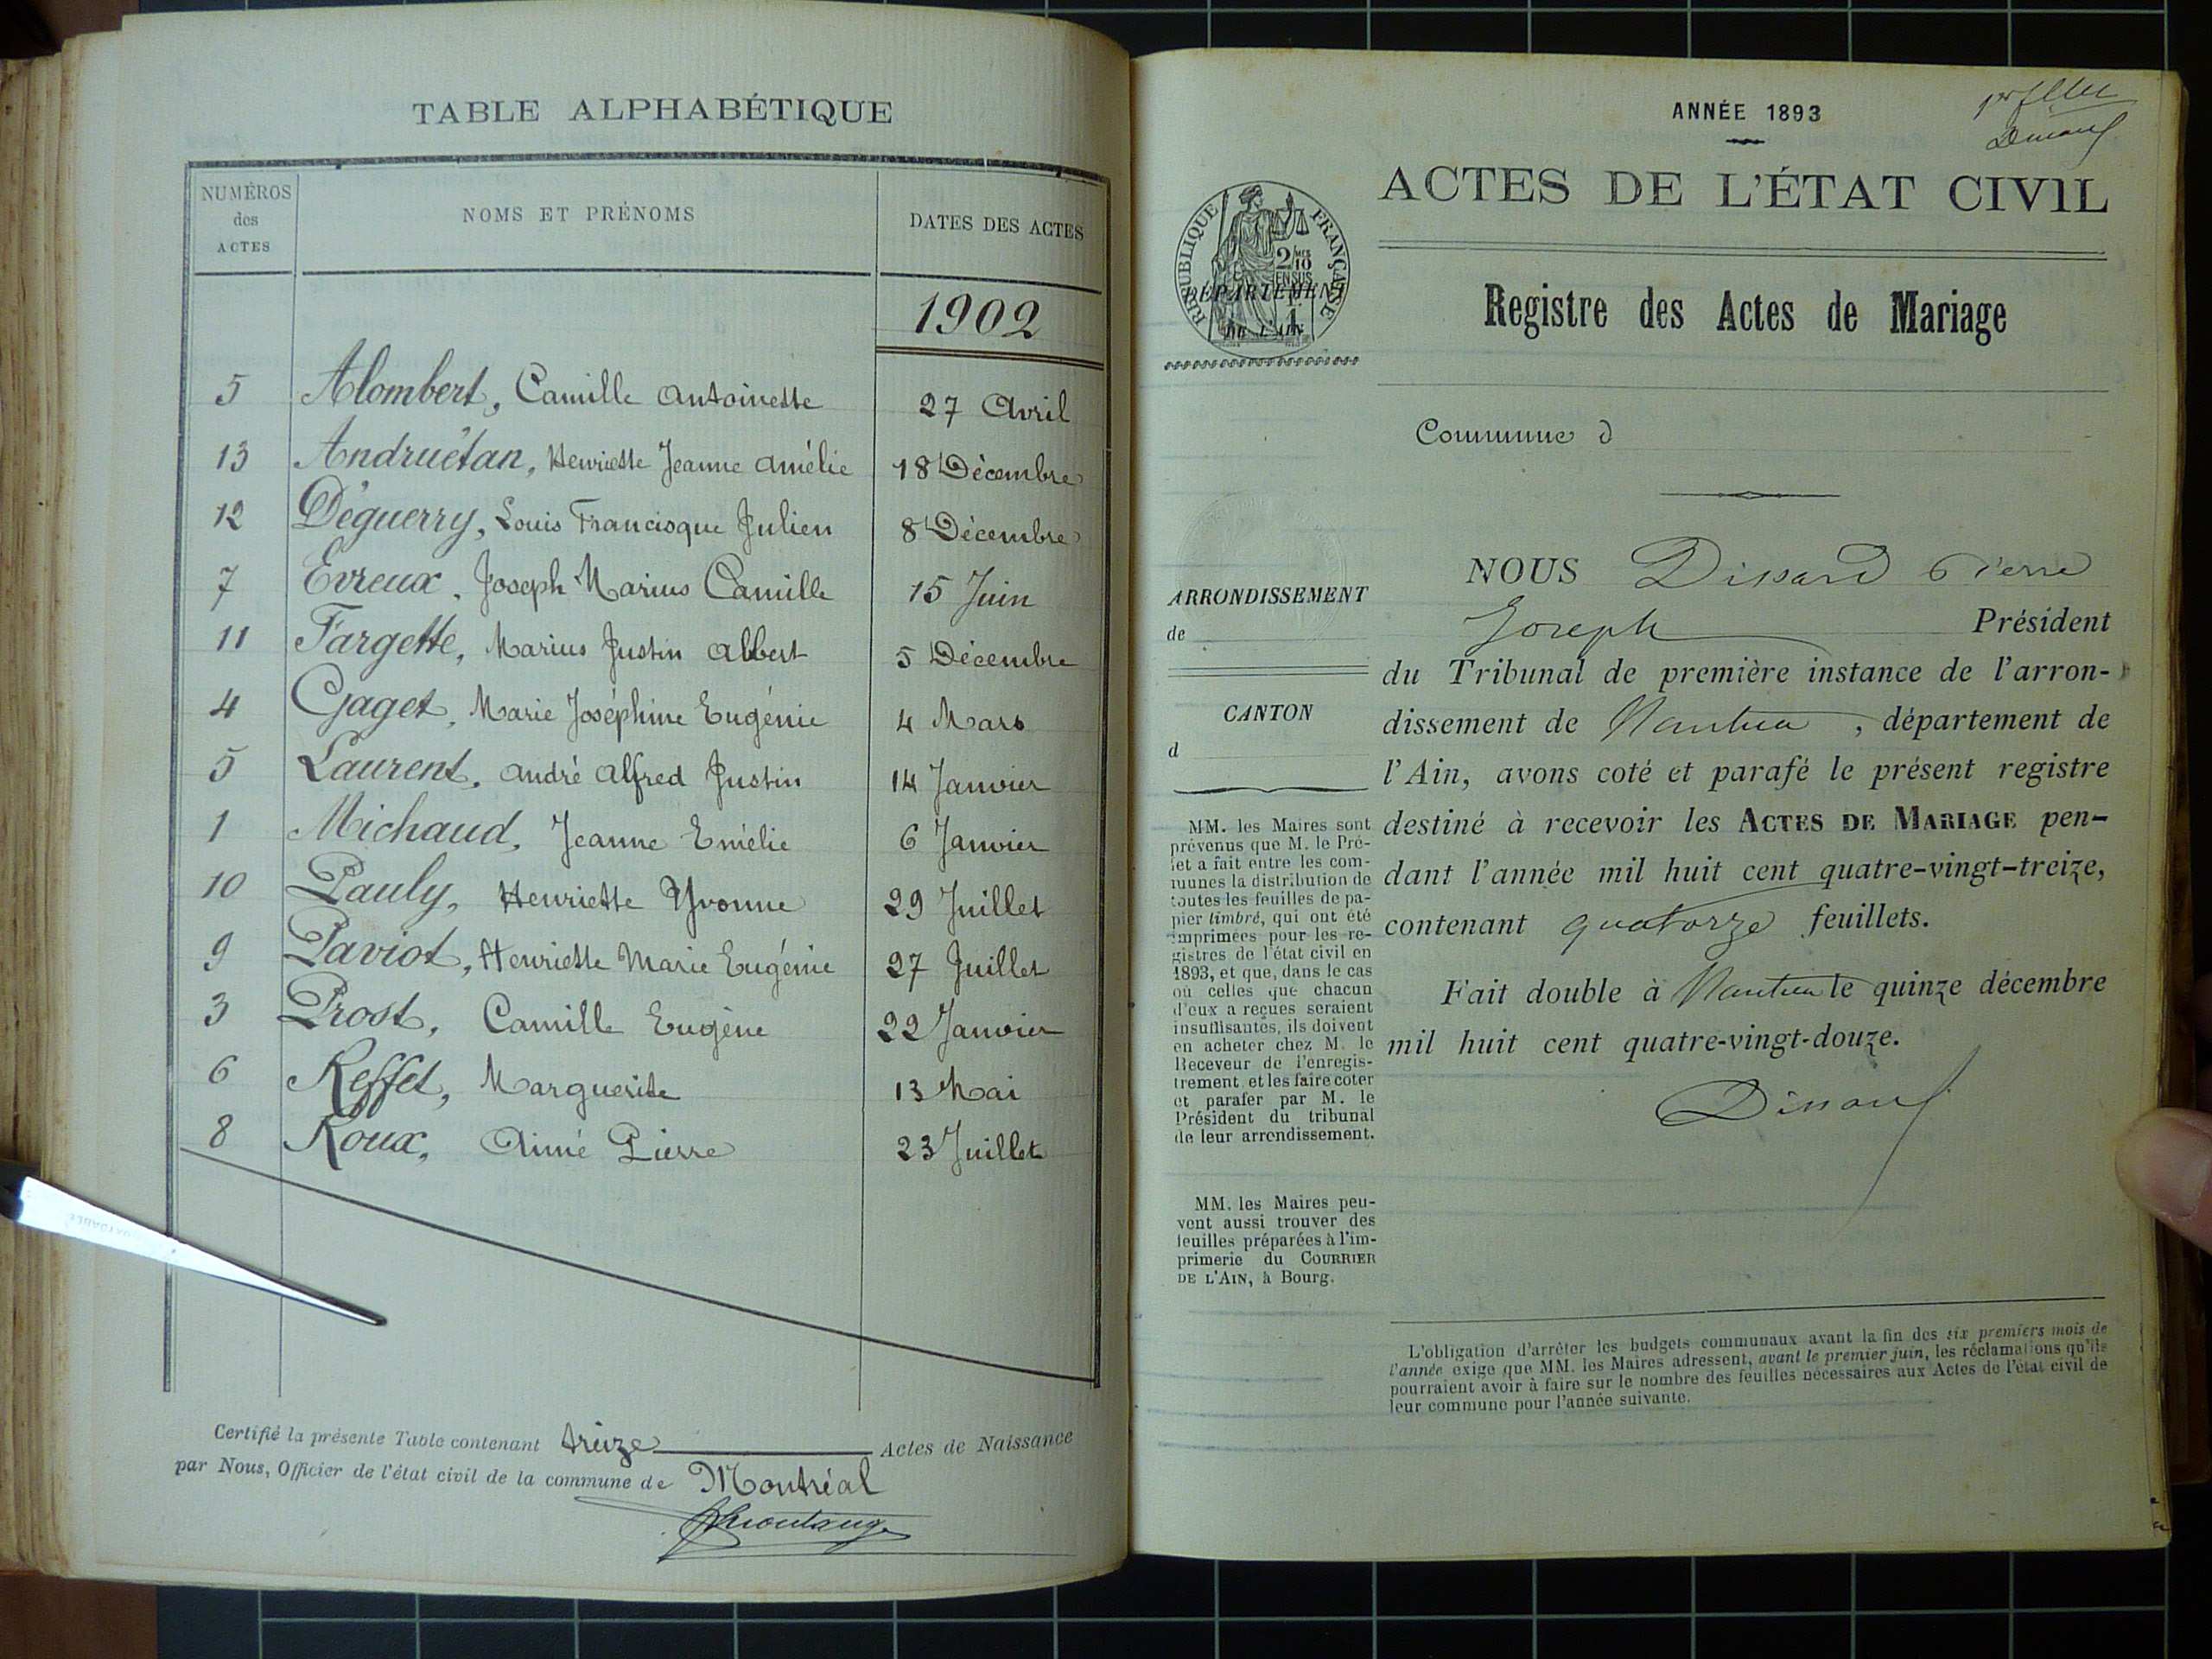 TABLE ALPHABÉTIQUE
NUMÉROS
des
ACTES
NOMS ET PRÉNOMS
DATES DES ACTES
1902
5 Alombert, Camille Antoinette 27 Avril
13 Andruétan, Henriette Jeanne Amélie 18 Décembre
12 Déguerry, Louis Francisque Julien 8 Décembre
7 Evreux, Joseph Marius Camille 15 Juin
11 Fargette, Marius Justin Albert 5 Décembre
4 Gaget, Marie Joséphine Eugénie 4 Mars
5 Laurent, André Alfred Justin 14 Janvier
1 Michaud, Jeanne Emélie 6 Janvier
10 Pauly, Henriette Yvonne 29 Juillet
9 Paviot, Henriette Marie Eugénie 27 Juillet
3 Prost, Camille Eugène 22 Janvier
6 Reffet, Marguerite 13 Mai
8 Roux, Aimé Pierre 23 Juillet
Certifié la présente Table contenant treize Actes de Naissance
par Nous, Officier de l'état civil de la commune de Montréal
ANNÉE 1893
ACTES DE L'ÉTAT CIVIL
RÉPUBLIQUE FRANÇAISE
2/10
EN SUS
DÉPARTEMENT
DE L'AIN
Registre des Actes de Mariage
Commune d
ARRONDISSEMENT
de
CANTON
d
MM. les Maires sont
prévenus que M. le Pré-
fet a fait entre les com-
munes la distribution de
toutes les feuilles de pa-
pier timbré, qui ont été
imprimées pour les re-
gistres de l'état civil en
1893, et que, dans le cas
où celles que chacun
d'eux a reçues seraient
insuffisantes, ils doivent
en acheter chez M. le
Receveur de l'enregis-
trement et les faire coter
et parafer par M. le
Président du tribunal
de leur arrondissement.
MM. les Maires peu-
vent aussi trouver des
feuilles préparées à l'im-
primerie du COURRIER
DE L'AIN, à Bourg.
NOUS Dissard Pierre
Joseph Président
du Tribunal de première instance de l'arron-
dissement de Nantua, département de
l'Ain, avons coté et parafé le présent registre
destiné à recevoir les ACTES DE MARIAGE pen-
dant l'année mil huit cent quatre-vingt-treize,
contenant quatorze feuillets.
Fait double à Nantua le quinze décembre
mil huit cent quatre-vingt-douze.
Dissard
L'obligation d'arrêter les budgets communaux avant la fin des six premiers mois de
l'année exige que MM. les Maires adressent, avant le premier juin, les réclamations qu'ils
pourraient avoir à faire sur le nombre des feuilles nécessaires aux Actes de l'état civil de
leur commune pour l'année suivante.